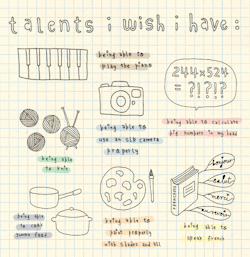 talents i wish i have:
being able to
play the piano
244x524
= ?!?!?
being able to
use an SLR camera
properly
being able to calculate
big numbers in my head
being able
to knit
bonjour
salut
merci
being able
to cook
yummy food
being able to
paint properly
with shades and all
being able to
speak french